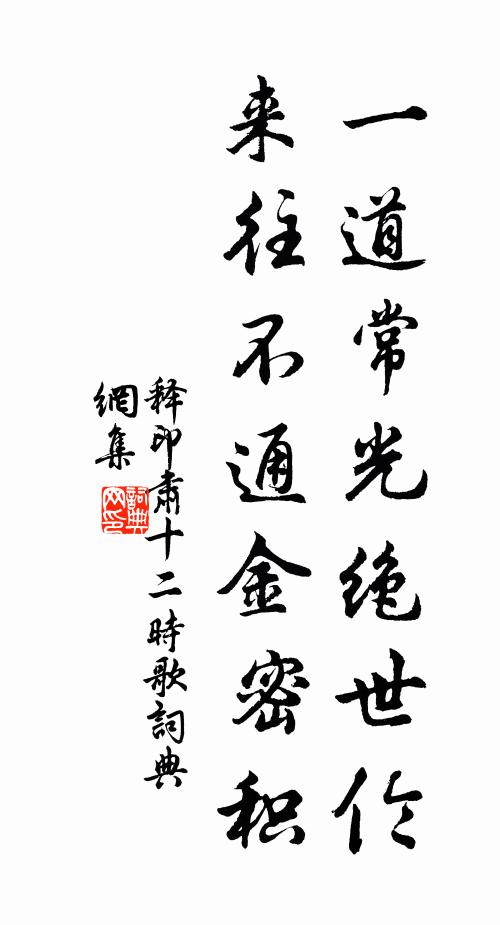 一道常光绝世伦
来往不通金密积
释印肃十二時歌詞典
網集
詞典
网印